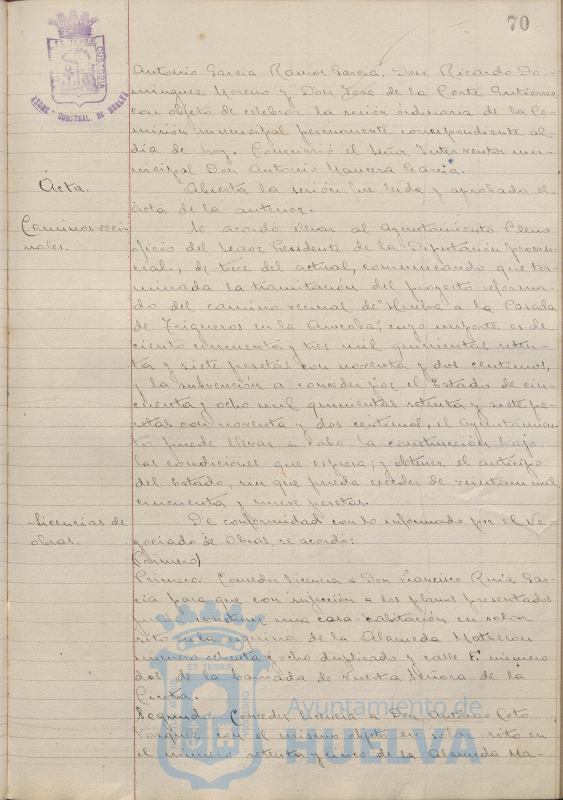 70
AYUNT. CONSTNAL. DE HUELVA
Antonio Garcia Ramos Garcia, Don Ricardo Do-
minguez Moreno y Don José de la Corte Gutierrez
con objeto de celebrar la sesión ordinaria de la Co-
misión municipal permanente correspondiente al
dia de hoy. Concurrió el Señor Interventor mu-
nicipal Don Antonio Mancera Garcia.
Acta.
Abierta la sesión fue leida y aprobada el
acta de la anterior.
Caminos veci-
nales.
Se acordó llevar al Ayuntamiento Pleno
oficio del Señor Presidente de la Diputación provin-
cial, de trece del actual, comunicando que ter-
minada la tramitación del proyecto reforma-
do del camino vecinal de "Huelva a la Pasada
de Trigueros en la Anicoba", cuyo importe es de
ciento cincuenta y tres mil quinientas seten-
ta y siete pesetas con noventa y dos centimos,
y la subvención a conceder por el Estado de cin-
cuenta y ocho mil quinientas setenta y siete pe-
setas con noventa y dos centimos, el Ayuntamien-
to puede llevar a cabo la construcción bajo
las condiciones que expresa; y obtener el anticipo
del Estado, sin que pueda exceder de veintiun mil
cincuenta y nueve pesetas.
Licencias de
obras.
De conformidad con lo informado por el Ne-
gociado de Obras, se acordó:
Primero)
Primero. Conceder licencia a Don Francisco Ruiz Gar-
cia para que con sujección a los planos presentados
pueda construir una casa-habitación en solar
sito en la esquina de la Alameda Matheson
numero ochenta y ocho duplicado y calle F. numero
dos de la barriada de Nuestra Señora de la
Cinta.
Segundo. Conceder licencia a Don Antonio Coto
Vazquez con el mismo objeto en solar sito en
el numero setenta y cinco de la Alameda Ma-
Ayuntamiento de
HUELVA